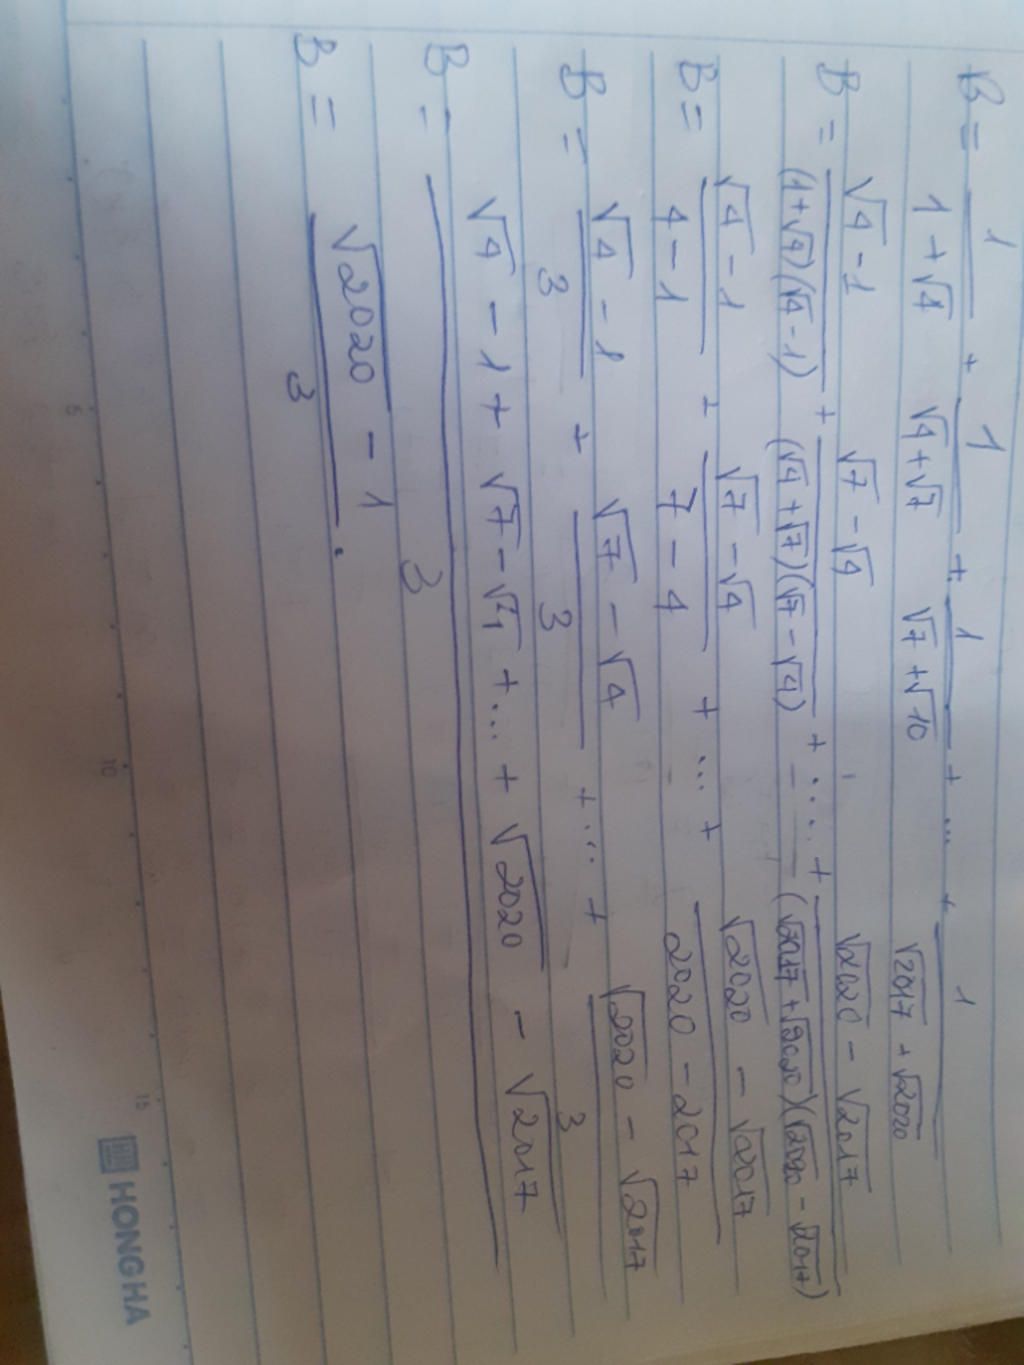 B = 1/(1+√4) + 1/(√4+√7) + 1/(√7+√10) + ... + 1/(√2017+√2020)
B = (√4-1)/((1+√4)(√4-1)) + (√7-√4)/((√4+√7)(√7-√4)) + .... + (√2020-√2017)/((√2017+√2020)(√2020-√2017))
B = (√4-1)/(4-1) + (√7-√4)/(7-4) + ... + (√2020-√2017)/(2020-2017)
B = (√4-1)/3 + (√7-√4)/3 + ... + (√2020-√2017)/3
B = (√4-1+√7-√4+...+√2020-√2017)/3
B = (√2020-1)/3.
5 10 15
HONG HA